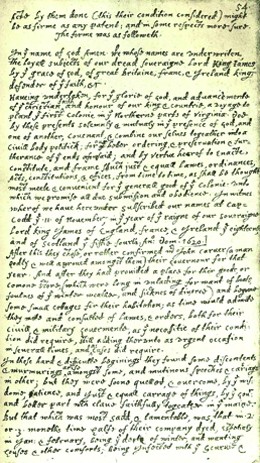 54
shold by them done (this their condition considered) might
be as firme as any patent; and in some respects more sure.
The forme was as followeth.
In yͤ name of god Amen. We whose names are underwriten,
the loyall subjects of our dread soveraigne Lord King James
by yͤ grace of god, of great Britaine, franc, & Ireland king,
defender of yͤ faith, &c.
Haveing undertaken, for yͤ glorie of god, and advancemente
of yͤ christian faith and honour of our king & countrie, a voyage to
plant yͤ first colonie in yͤ Northerne parts of Virginia. Doe
by these presents solemnly & mutualy in yͤ presence of god, and
one of another, covenant, & combine our selves togeather into a
Civill body politick; for our better ordering, & preservation & fur=
therance of yͤ ends aforesaid; and by vertue hearof to enacte,
constitute, and frame such just & equall Lawes, ordinances,
Acts, constitutions, & offices, from time to time, as shall be thought
most meete & convenient for yͤ generall good of yͤ colonie: unto
which we promise all due submission and obedience. In witnes
wherof we have hereunder subscribed our names at cap=
Codd yͤ 11 of November, in yͤ year of yͤ raigne of our soveraigne
Lord king James of England, franc, & Ireland yͤ eighteenth
and of Scotland yͤ fiftie fourth. Ano Dom. 1620.
After this they chose, or rather confirmed mͬ John Carver (a man
godly & well approved amongst them) their Governour for that
year. And after they had provided a place for their goods, or
comone store, (which were long in unlading for want of boats,
foulnes of yͤ winter weather, and sicknes of diverce) and begune
some small cottages for their habitation; as time would admitte
they mette and consulted of lawes, & orders, both for their
civill & military Govermente, as yͤ necessitie of their condi=
tion did require, still adding therunto as urgent occation
in severall times, and as cases did require.
In these hard & difficulte beginings they found some discontents
& murmurings arise amongst some, and mutinous speeches & carriages
in other; but they were soone quelled, & overcome, by yͤ wis=
dome, patience, and just & equall carrage of things, by yͤ Govr
and better part wͨʰ clave faithfully togeather in yͤ maine.
But that which was most sadd, & lamentable, was that in 2.
or 3. moneths time halfe of their company dyed, espetialy
in Jan: & february, being yͤ depth of winter, and wanting
houses & other comforts; being infected with yͤ scurvie &